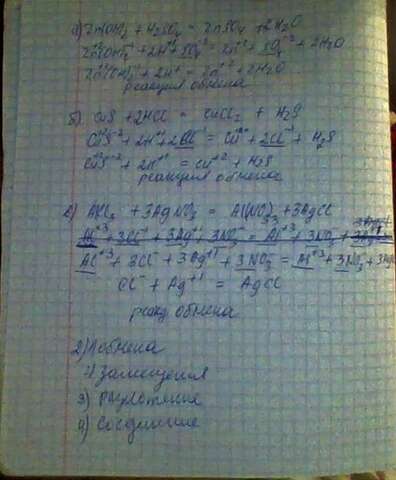 а) Zn(OH)₂ + H₂SO₄ = ZnSO₄ + 2H₂O
Zn(OH)₂ + 2H⁺ + SO₄⁻² = Zn⁺² + SO₄⁻² + 2H₂O
Zn(OH)₂ + 2H⁺ = Zn⁺² + 2H₂O
реакция обмена
б) CuS + 2HCl = CuCl₂ + H₂S
CuS + 2H⁺¹ + 2Cl⁻¹ = Cu⁺² + 2Cl⁻¹ + H₂S
CuS + 2H⁺¹ = Cu⁺² + H₂S
реакция обмена
в) AlCl₃ + 3AgNO₃ = Al(NO₃)₃ + 3AgCl
Al⁺³ + 3Cl⁻¹ + 3Ag⁺¹ + 3NO₃⁻ = Al⁺³ + 3NO₃ +
Al⁺³ + 3Cl⁻ + 3Ag⁺¹ + 3NO₃⁻ = Al⁺³ + 3NO₃ + 3Ag
Cl⁻ + Ag⁺¹ = AgCl
реакц обмена
2) 1) обмена
2) Замещения
3) Разложения
4) Соединение